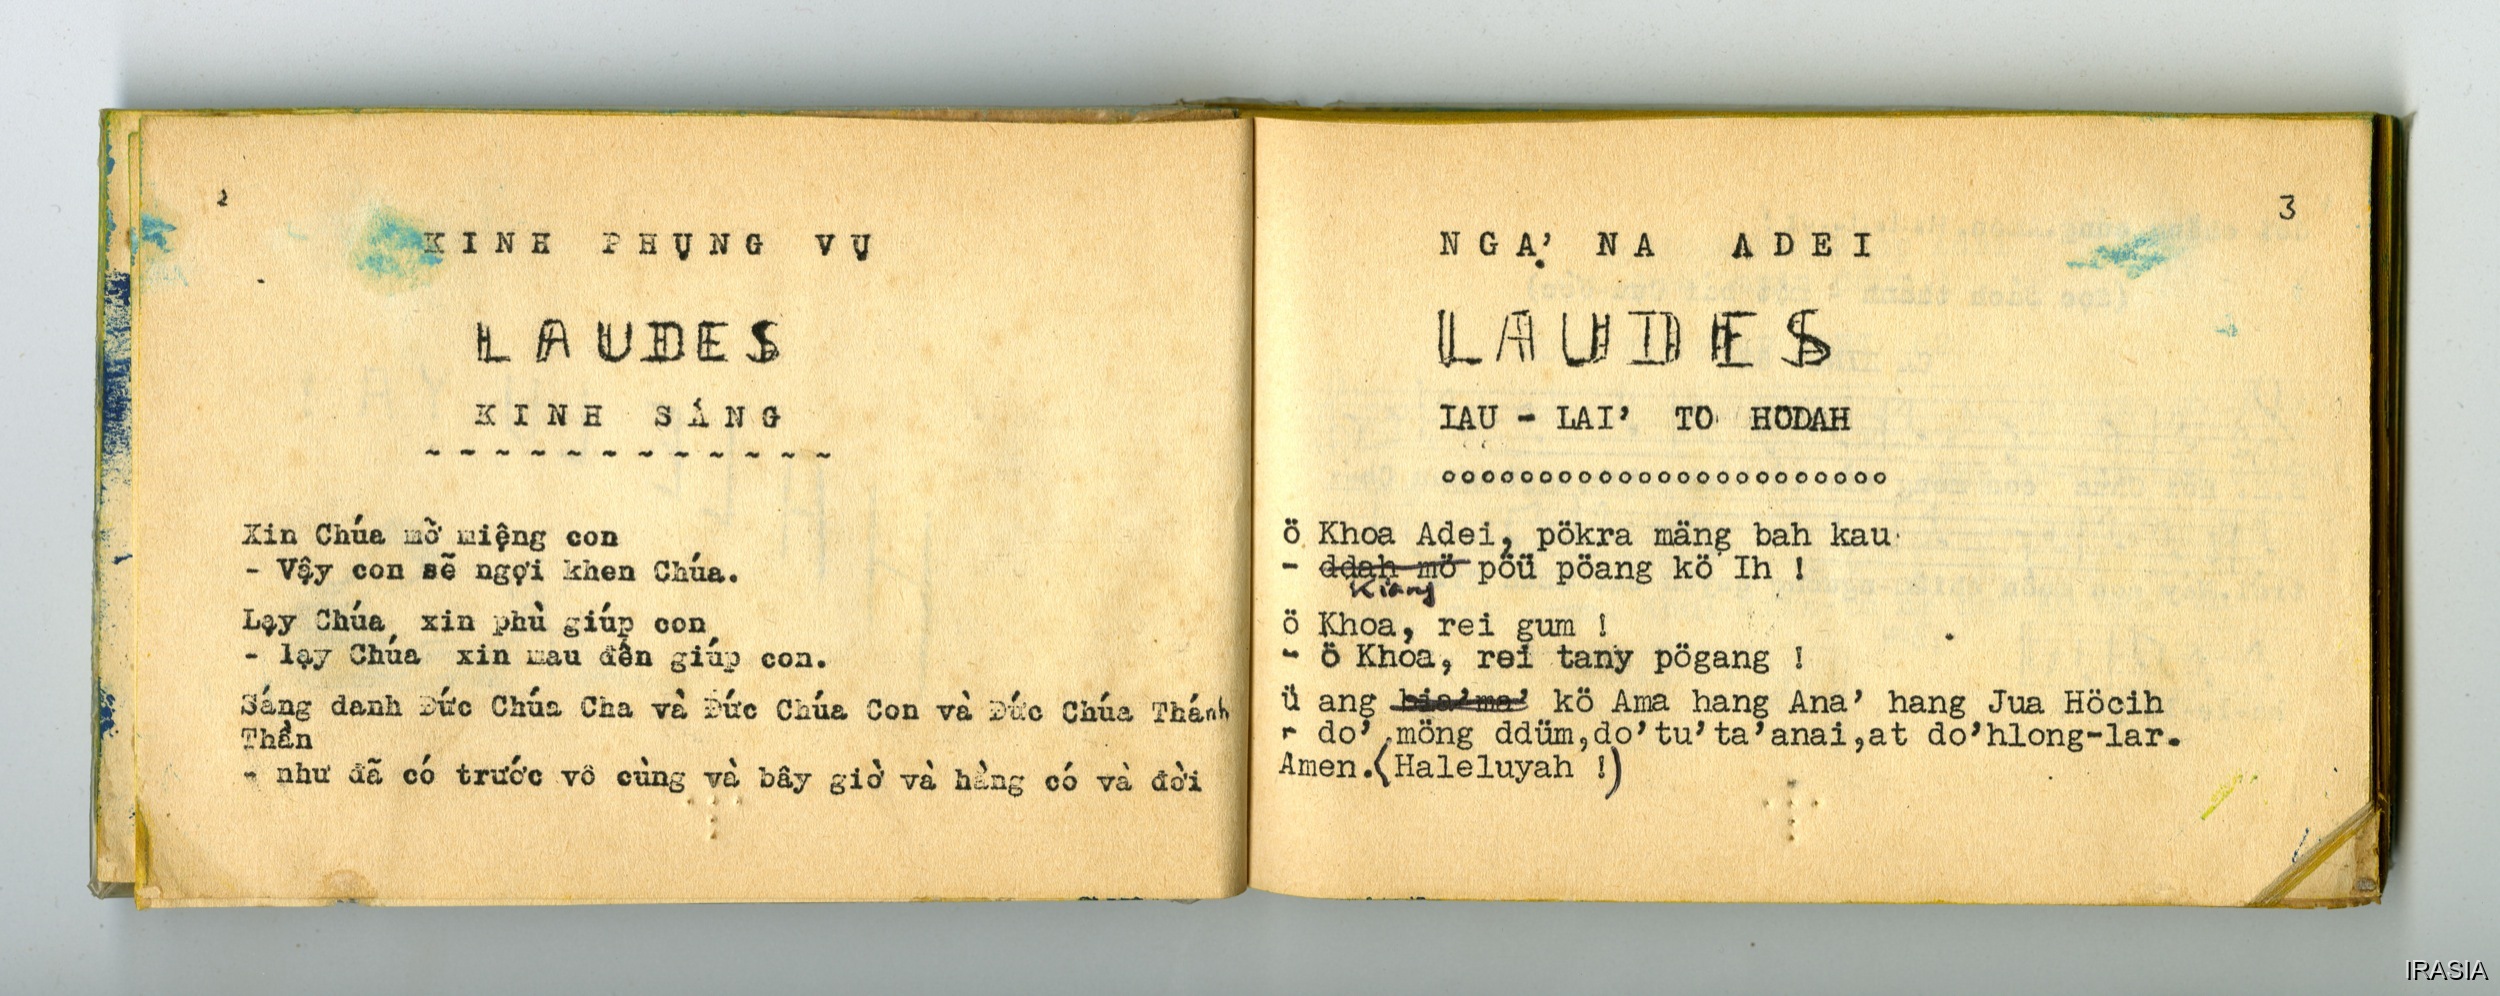 2
KINH PHỤNG VỤ
LAUDES
KINH SÁNG
~ ~ ~ ~ ~ ~ ~ ~ ~ ~ ~ ~
Xin Chúa mở miệng con
- Vậy con sẽ ngợi khen Chúa.
Lạy Chúa xin phù giúp con
- lạy Chúa xin mau đến giúp con.
Sáng danh Đức Chúa Cha và Đức Chúa Con và Đức Chúa Thánh
Thần
- như đã có trước vô cùng và bây giờ và hằng có và đời
3
NGA̩' NA ADEI
LAUDES
IAU - LAI' TO HÖDAH
ooooooooooooooooooooooo
ö Khoa Adei, pökra mäng bah kau
- ddah mö pöü pöang kö Ih !
Kiang
ö Khoa, rei gum !
- ö Khoa, rei tany pögang !
ü ang bia'ma' kö Ama hang Ana' hang Jua Höcih
- do' möng ddüm,do'tu'ta'anai,at do'hlong-lar.
Amen.(Haleluyah !)
IRASIA